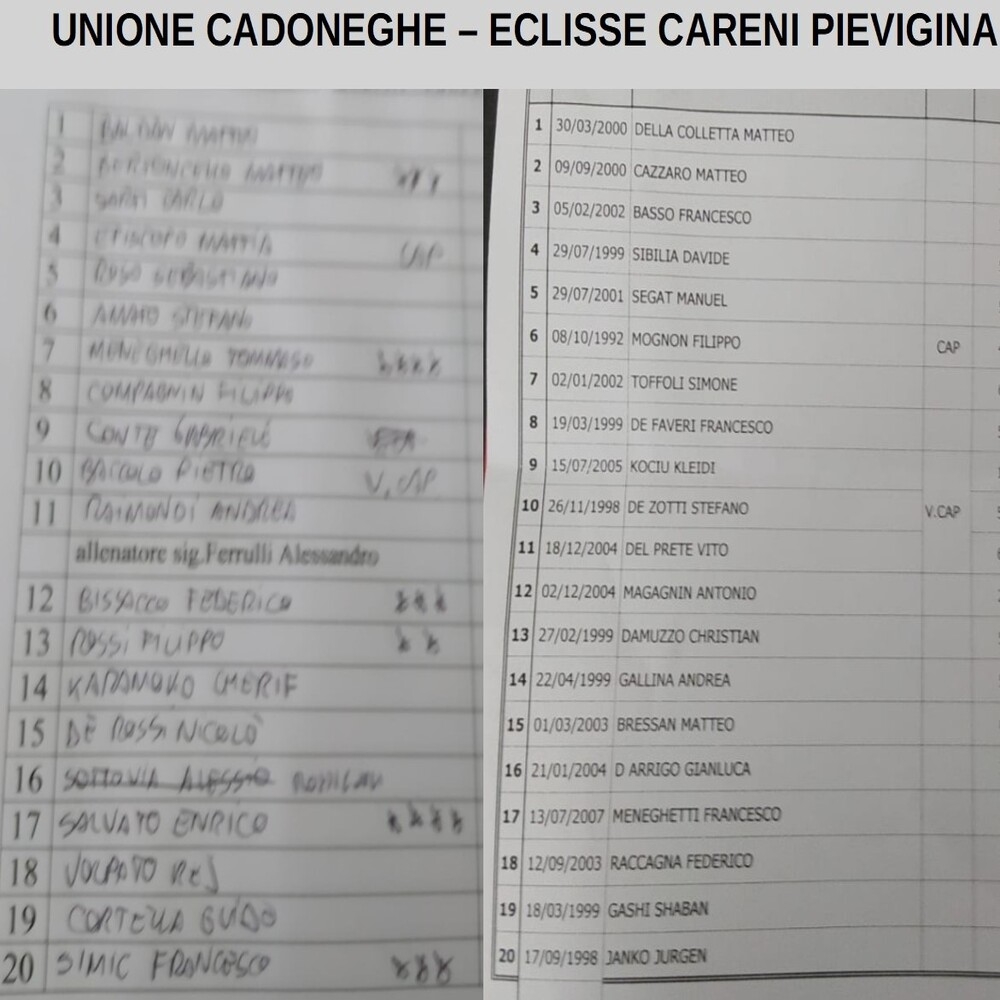 UNIONE CADONEGHE – ECLISSE CARENI PIEVIGINA
1 MATTEO
2 BERTONCELLO MATTEO
3 CARLO
4 EPISCOPO MATTIA CAP
5 SEBASTIANO
6 AMATO STEFANO
7 MENEGHELLO TOMMASO
8 COMPAGNIN FILIPPO
9 CONTE GABRIELE
10 PIETRO V.CAP
11 RAIMONDI ANDREA
allenatore sig.Ferrulli Alessandro
12 BISSACCO FEDERICO
13 ROSSI FILIPPO
14 CHERIF
15 DE ROSSI NICOLÒ
16 SOTTOVIA ALESSIO
17 SALVATO ENRICO
18 VOLPATO
19 CORTELLA GUIDO
20 SIMIC FRANCESCO
1 30/03/2000 DELLA COLLETTA MATTEO
2 09/09/2000 CAZZARO MATTEO
3 05/02/2002 BASSO FRANCESCO
4 29/07/1999 SIBILIA DAVIDE
5 29/07/2001 SEGAT MANUEL
6 08/10/1992 MOGNON FILIPPO CAP
7 02/01/2002 TOFFOLI SIMONE
8 19/03/1999 DE FAVERI FRANCESCO
9 15/07/2005 KOCIU KLEIDI
10 26/11/1998 DE ZOTTI STEFANO V.CAP
11 18/12/2004 DEL PRETE VITO
12 02/12/2004 MAGAGNIN ANTONIO
13 27/02/1999 DAMUZZO CHRISTIAN
14 22/04/1999 GALLINA ANDREA
15 01/03/2003 BRESSAN MATTEO
16 21/01/2004 D ARRIGO GIANLUCA
17 13/07/2007 MENEGHETTI FRANCESCO
18 12/09/2003 RACCAGNA FEDERICO
19 18/03/1999 GASHI SHABAN
20 17/09/1998 JANKO JURGEN